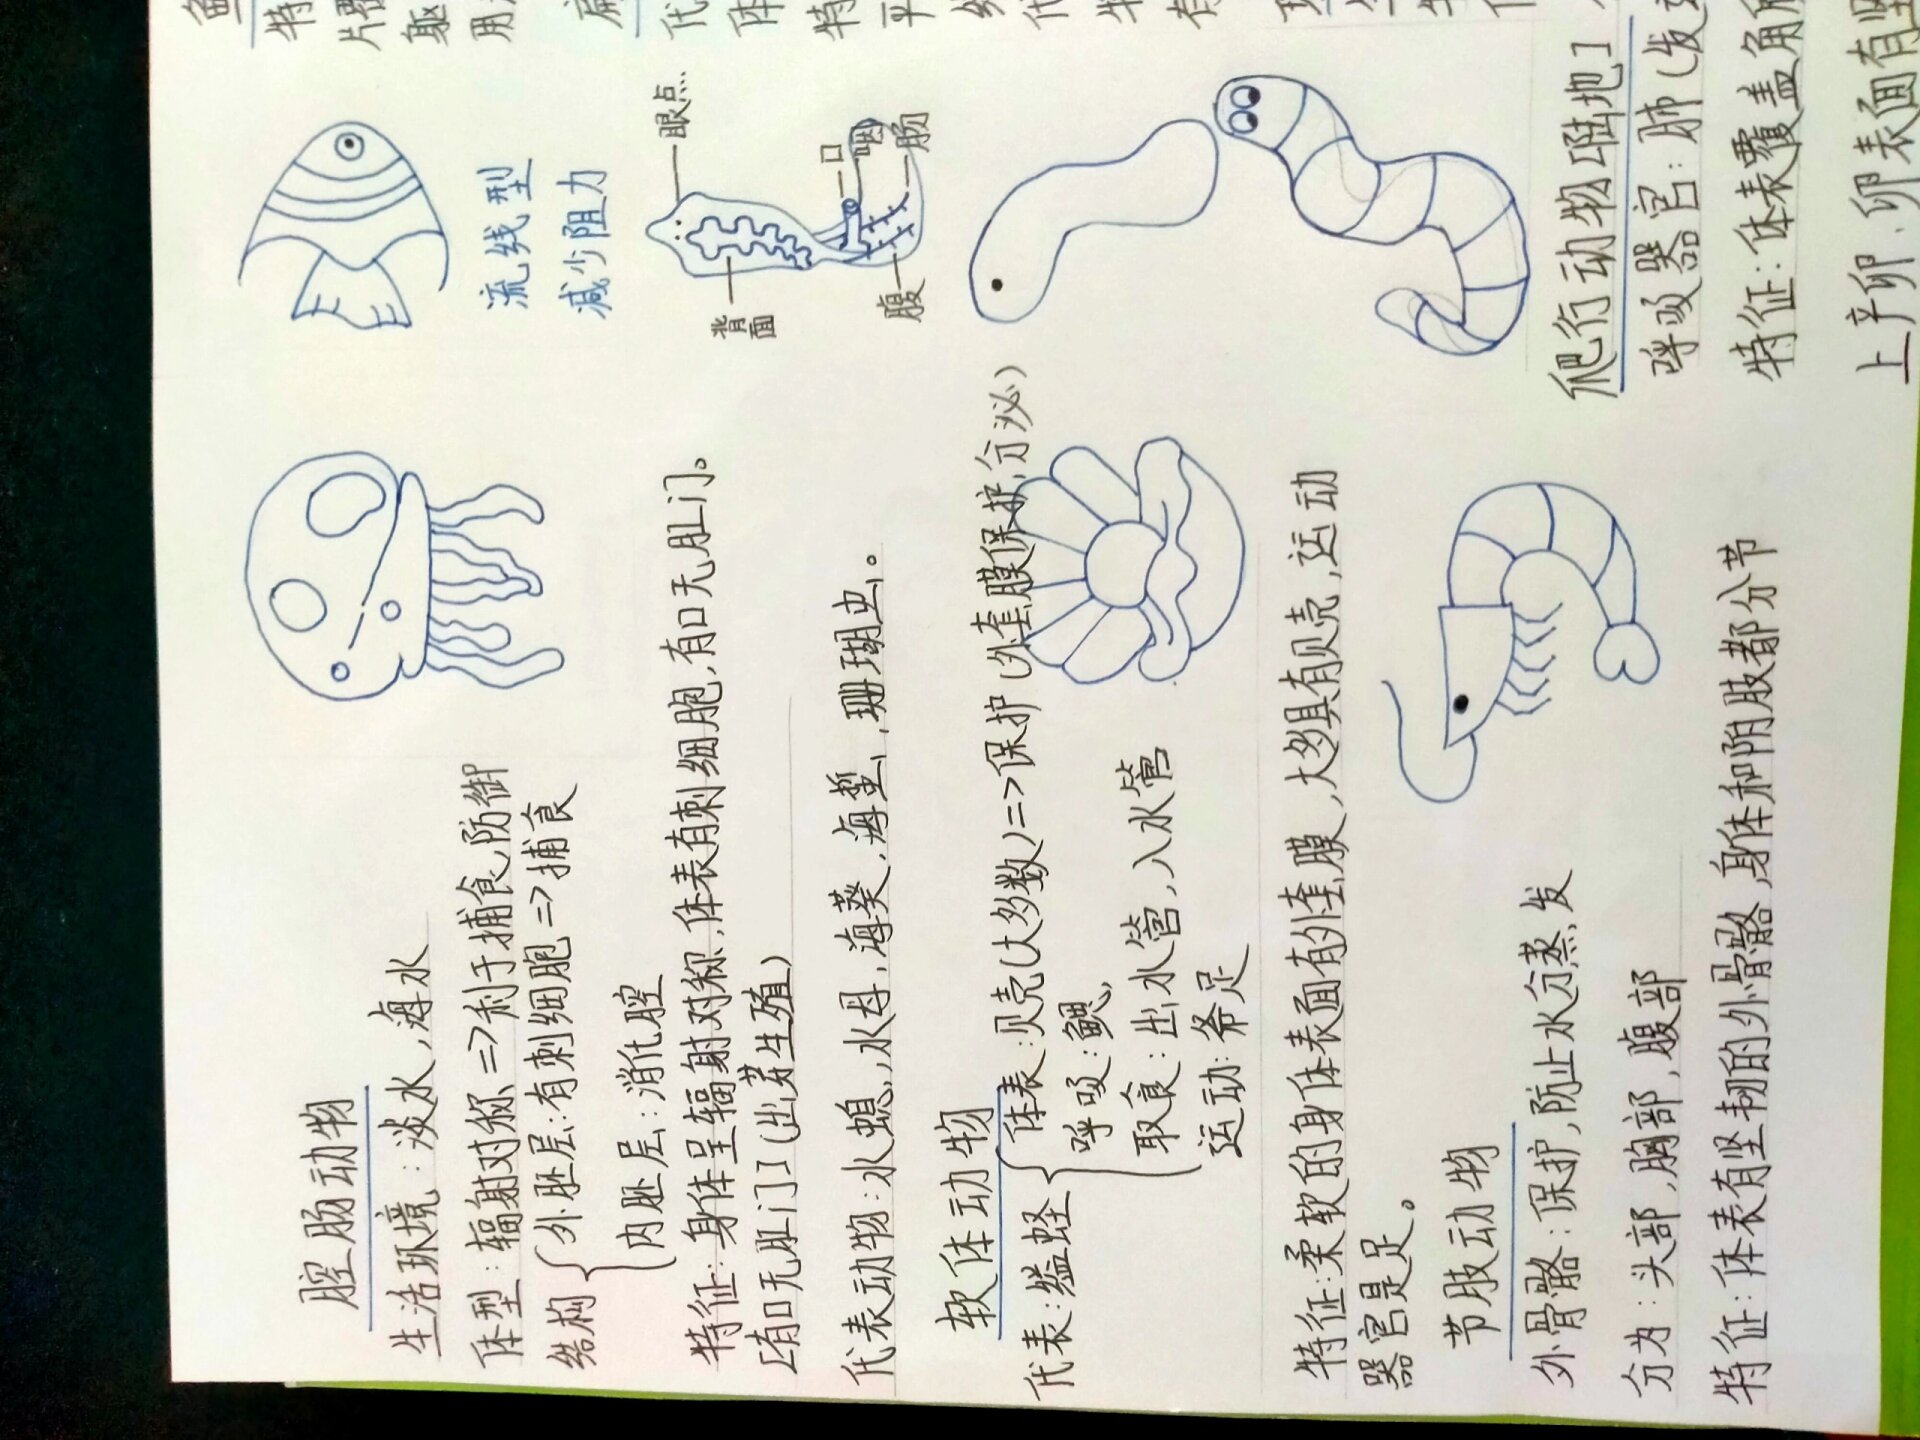 腔肠动物
生活环境：淡水，海水
体型：辐射对称=>利于捕食，防御
结构
外胚层：有刺细胞=>捕食
内胚层：消化腔
特征：身体呈辐射对称，体表有刺细胞，有口无肛门。
[有口无肛门]（出芽生殖）
代表动物：水螅，水母，海葵，海蜇，珊瑚虫。
软体动物
代表：缢蛏
体表：贝壳（大多数）=>保护（外套膜保护，分泌）
呼吸：鳃，
取食：出水管，入水管
运动：斧足
特征：柔软的身体表面有外套膜，大多具有贝壳，运动
器官是足。
节肢动物
外骨骼：保护，防止水分蒸发
分为：头部，胸部，腹部
特征：体表有坚韧的外骨骼，身体和附肢都分节
流线型
减少阻力
眼点
背面
口
咽
肠
腹
爬行动物[陆地]
呼吸器官：肺（发
特征：体表覆盖角
上产卵，卵表面有坚
特
片
躯
用
代
体
特
平